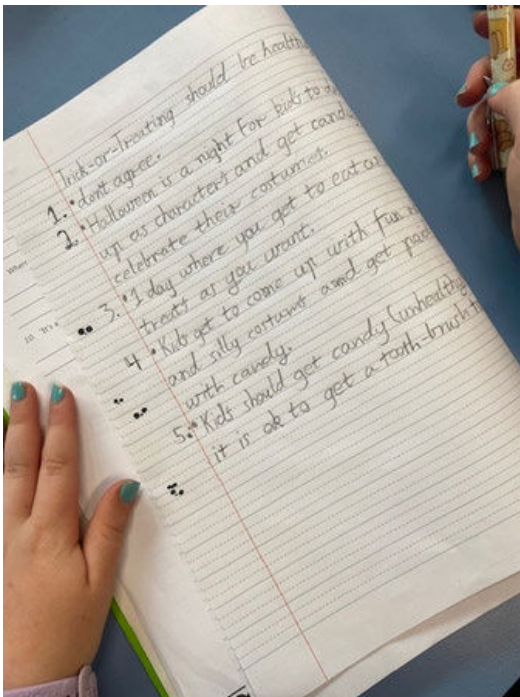 Trick-or-Treating should be health
1. • don't agree.
2. • Halloween is a night for kids to
up as characters and get cand
celebrate their costumes.
3. • 1 day where you get to eat as
treats as you want.
4 • Kids get to come up with fun
and silly costums amd get
with candy.
5. • Kids should get candy (unhealthy
it is ok to get a tooth-brush
When